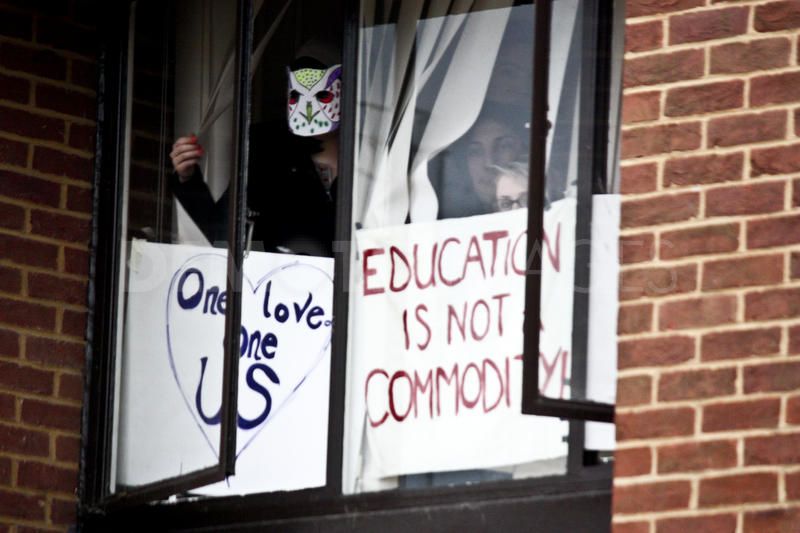 One love.
One
US
EDUCATION
IS NOT A
COMMODITY!
DEMOTIX IMAGES